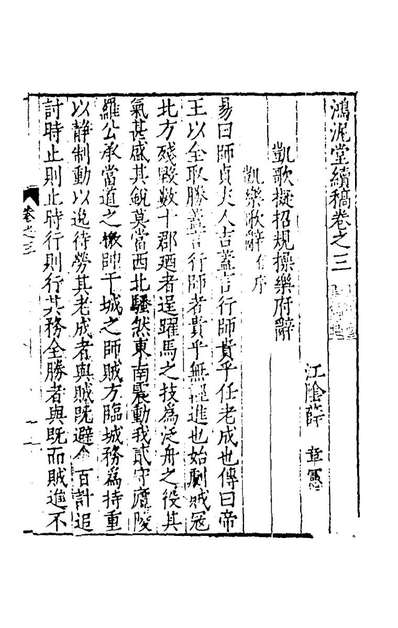 鴻泥堂續稿卷之三
江陰薛章憲
凱歌擬招規操樂府辭
凱樂歌辭有序
易曰師貞丈人吉蓋言行師貴乎任老成也傳曰帝
王以全取勝蓋言行師者貴乎無逞進也始劇賊寇
北方殘毀數十郡廼者逞躍馬之技為泛舟之役其
氣甚盛其鋭莫當西北騷然東南震動我貳守廬陵
羅公承當道之檄帥干城之師賊方臨城務為持重
以静制動以逸待勞其老成者與賊既避舍百計追
討時止則止時行則行其務全勝者與既而賊進不
卷之三
一